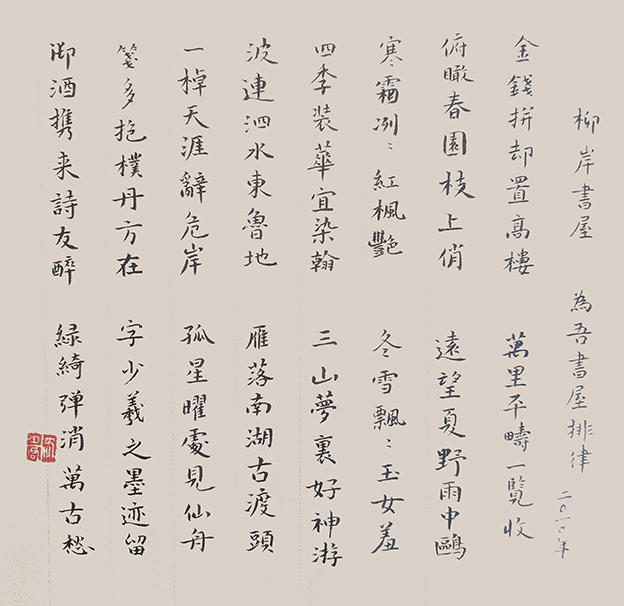 柳岸書屋 為吾書屋排律
金錢拼却置高樓 萬里平疇一覽收
俯瞰春園枝上俏 遠望夏野雨中鷗
寒霜冽〻紅楓豔 冬雪飄〻玉女羞
四季装蕐宜染翰 三山夢裏好神游
波連泗水東魯地 雁落南湖古渡頭
一棹天涯辭危岸 孤星曜處見仙舟
箋多抱樸丹方在 字少羲之墨迹留
御酒携来詩友醉 緑綺弹消萬古愁